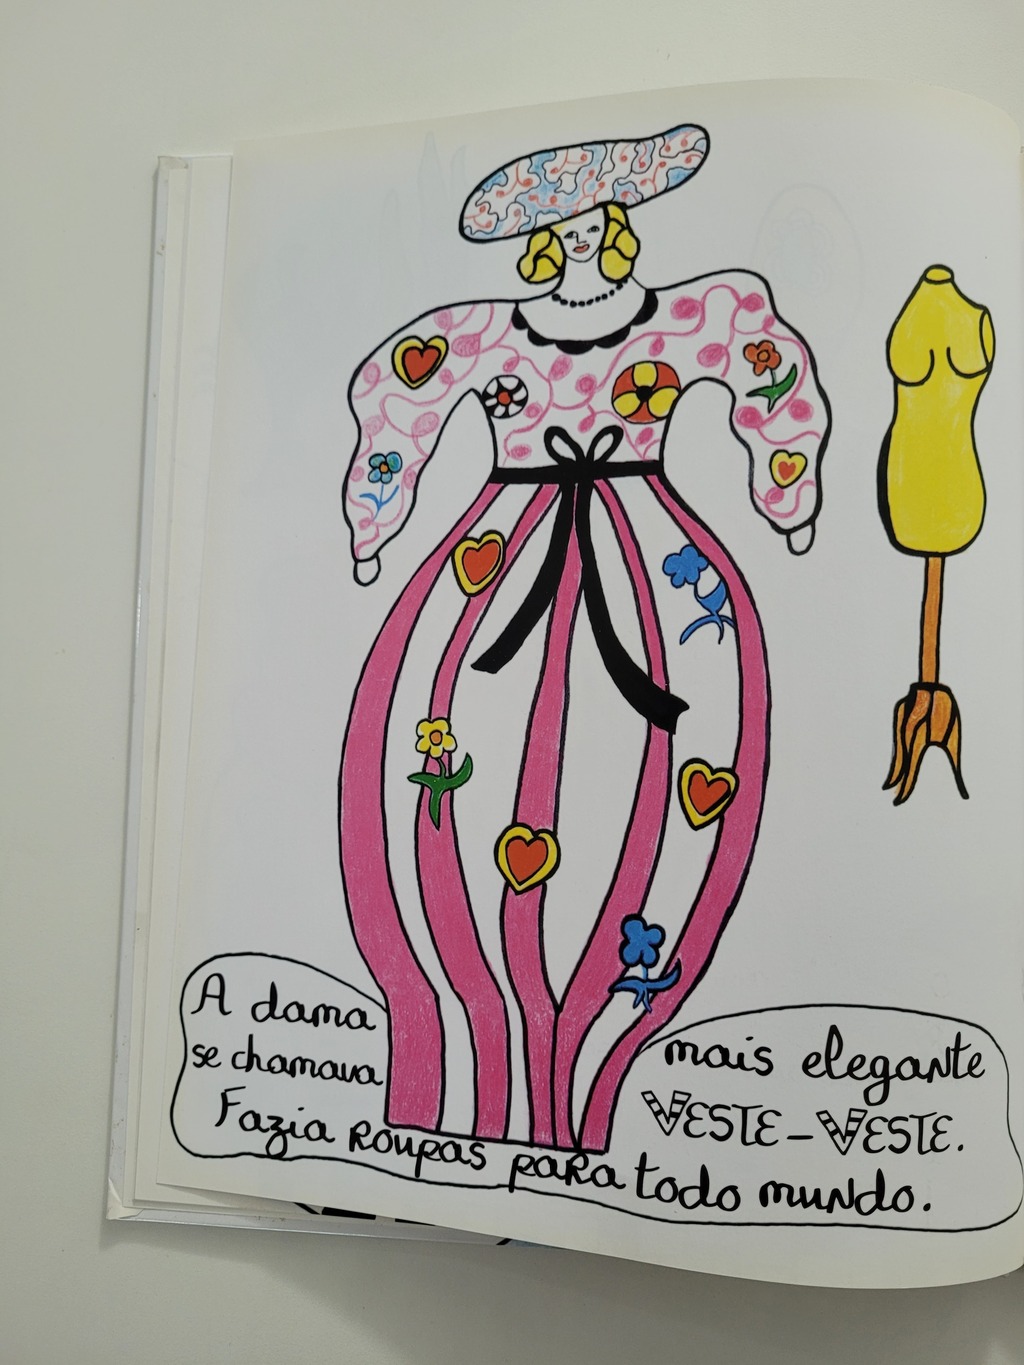 A dama mais elegante
se chamava VESTE-VESTE.
Fazia roupas para todo mundo.